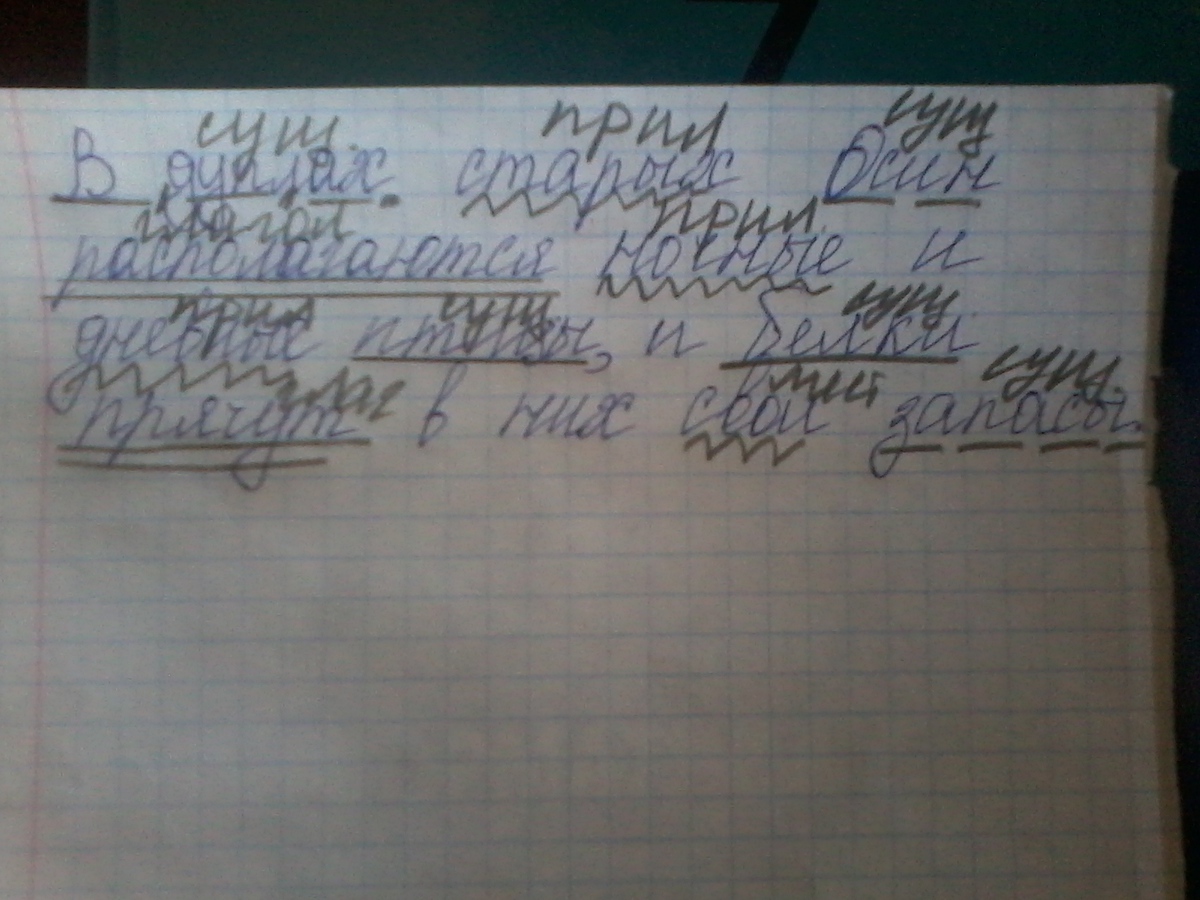 сущ. прил сущ
В дуплах старых Осин
глагол прил.
располагаются ночные и
прил сущ сущ.
дневные птицы, и белки
глаг мест сущ.
прячут в них свои запасы.